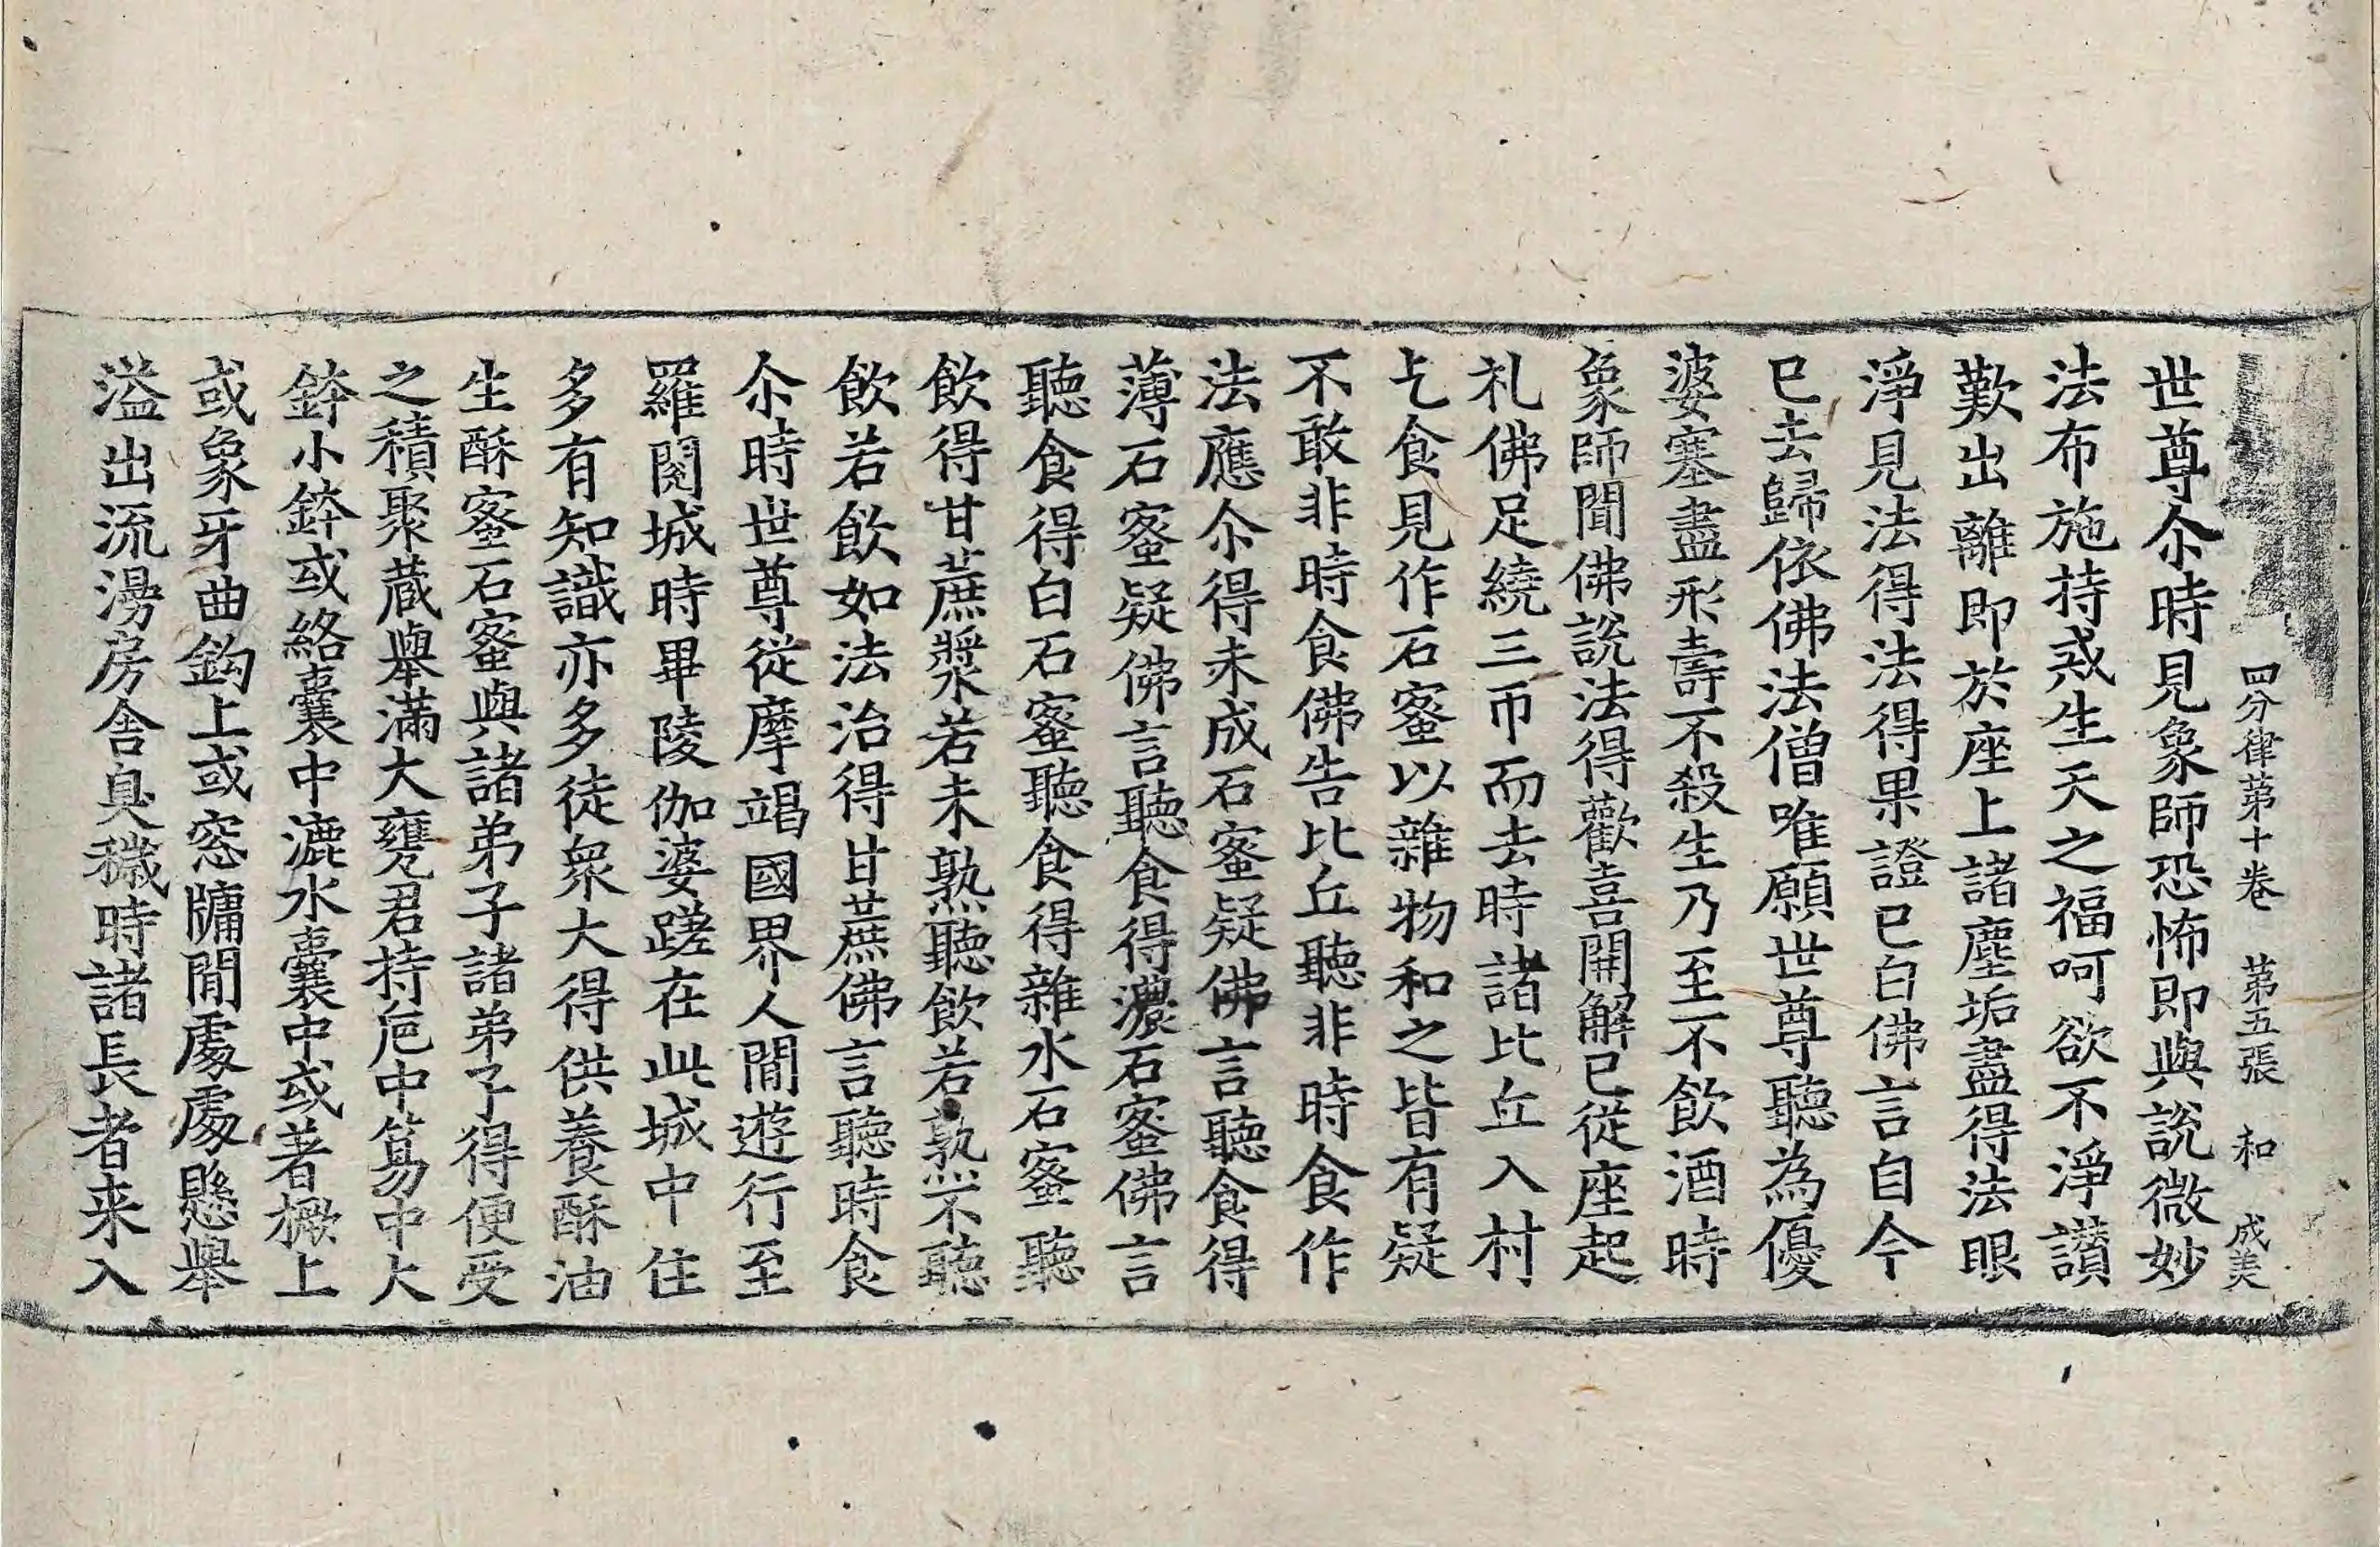 四分律苐十卷 苐五張 和 成美
世尊尒時見象師恐怖即與說微妙
法布施持戒生天之福呵欲不淨讃
歎出離即於座上諸塵垢盡得法眼
淨見法得法得果證已白佛言自今
已去歸依佛法僧唯願世尊聽為優
婆塞盡形壽不殺生乃至不飲酒時
象師聞佛說法得歡喜開解已從座起
礼佛足繞三帀而去時諸比丘入村
乞食見作石蜜以雜物和之皆有疑
不敢非時食佛告比丘聽非時食作
法應尒得未成石蜜疑佛言聽食得
薄石蜜疑佛言聽食得濃石蜜佛言
聽食得白石蜜聽食得雜水石蜜聽
飲得甘蔗漿若未熟聽飲若熟不聽
飲若飲如法治得甘蔗佛言聽時食
尒時世尊從摩竭國界人閒遊行至
羅閱城時畢陵伽婆蹉在此城中住
多有知識亦多徒衆大得供養酥油
生酥蜜石蜜與諸弟子諸弟子得便受
之積聚蔵舉滿大甕君持瓨中篣中大
鉢小鉢或絡囊中漉水囊中或著橛上
或象牙曲鈎上或窓牗閒處處懸舉
溢出流漫房舍臭穢時諸長者来入